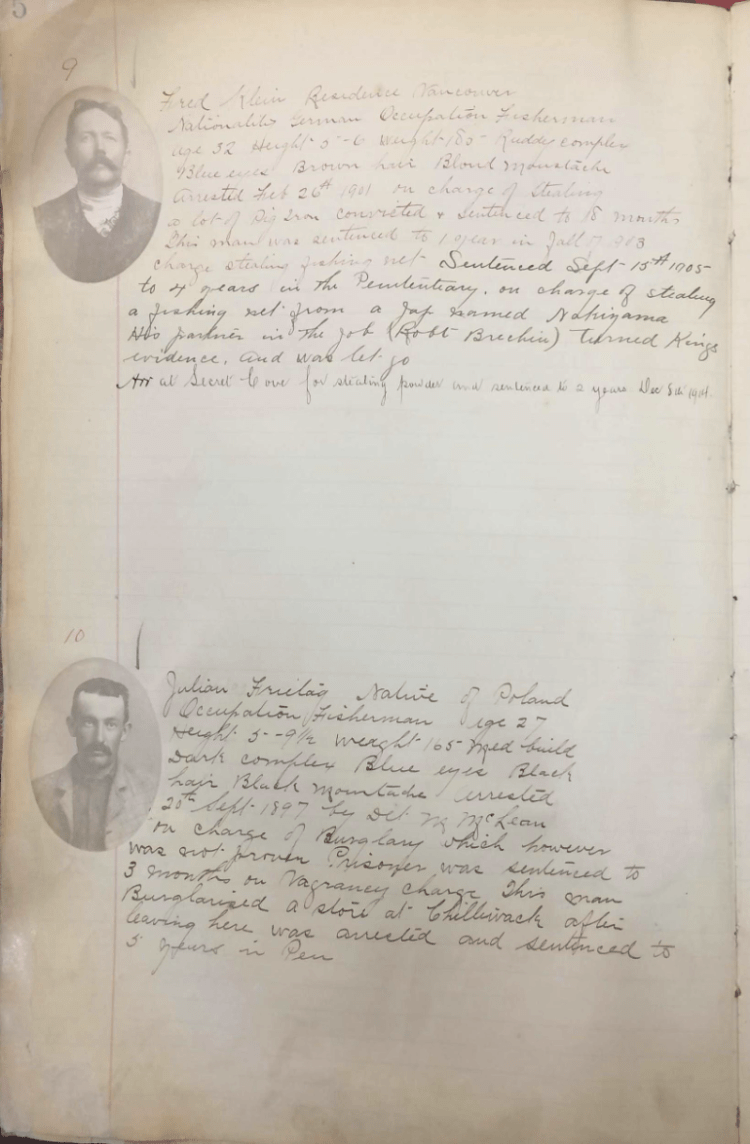 5
9
Fred Klein Residence Vancouver
Nationality German Occupation Fisherman
age 32 Height 5-6 weight 185 Ruddy complex
Blue eyes Brown hair Blond Moustache
Arrested Feb 26th 1901 on charge of stealing
a lot of Pig Iron convicted & sentenced to 18 months
This man was sentenced to 1 year in Jail 1903
charge stealing fishing net Sentenced Sept 15th 1905
to 4 years in the Penitentiary. on charge of stealing
a fishing net from a Jap named Nakiyama
His partner in the job (Robt Brechin) turned Kings
evidence. and was let go
Arr at Secret Cove for stealing powder and sentenced to 2 years Dec 8th
10
Julian Frietag Native of Poland
Occupation Fisherman age 27
Height 5-9½ weight 165 Med build
Dark complex Blue eyes Black
hair Black Moustache arrested
20th Sept 1897 by Det McLean
on charge of Burglary which however
was not proven Prisoner was sentenced to
3 months on Vagrancy charge This man
Burglarised a store at Chilliwack after
leaving here was arrested and sentenced to
5 years in Pen